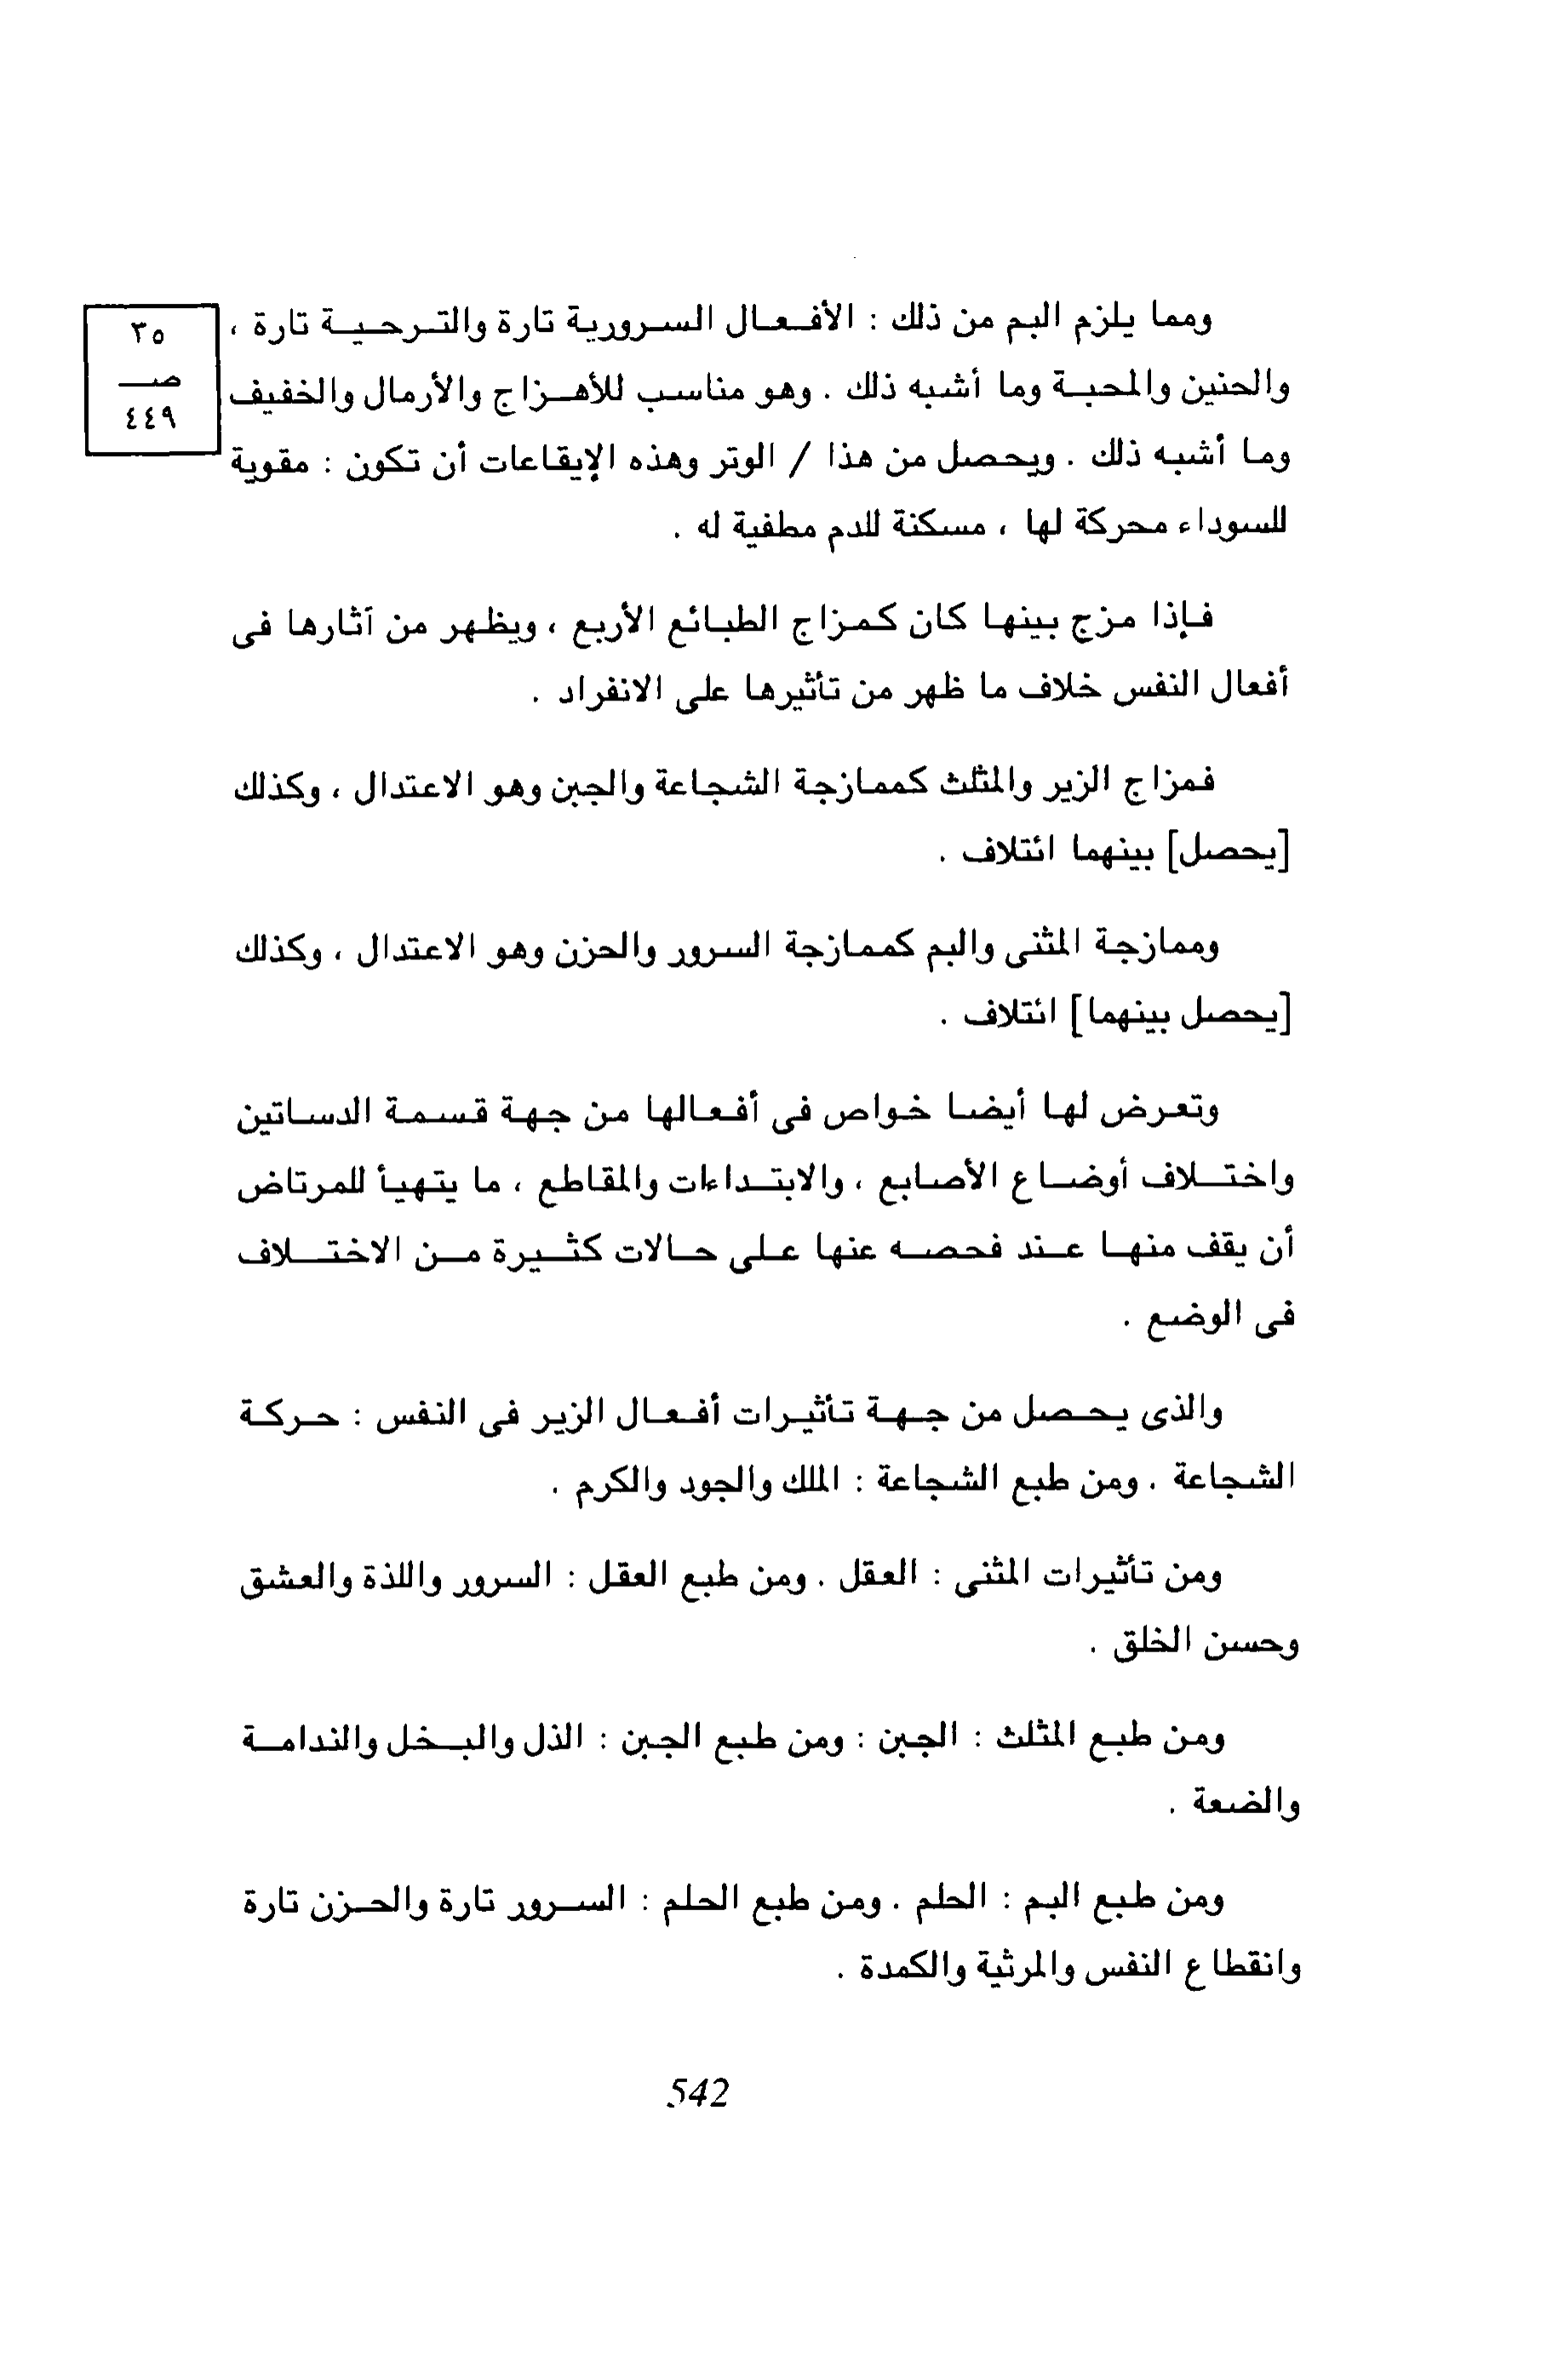 ومما يلزم البم من ذلك : الأفعال السرورية تارة والترحية تارة ،
والحنين والمحبة وما أشبه ذلك . وهو مناسب للأهزاج والأرمال والخفيف
وما أشبه ذلك . ويحصل من هذا / الوتر وهذه الإيقاعات أن تكون : مقوية
للسوداء محركة لها ، مسكنة للدم مطفية له .
٣٥
صـ
٤٤٩
فإذا مزج بينها كان كمزاج الطبائع الأربع ، ويظهر من آثارها فى
أفعال النفس خلاف ما ظهر من تأثيرها على الانفراد .
فمزاج الزير والمثلث كممازجة الشجاعة والجبن وهو الاعتدال ، وكذلك
[يحصل] بينهما ائتلاف .
وممازجة المثنى والبم كممازجة السرور والحزن وهو الاعتدال ، وكذلك
[يحصل بينهما] ائتلاف .
وتعرض لها أيضا خواص فى أفعالها من جهة قسمة الدساتين
واختلاف أوضاع الأصابع ، والابتداءات والمقاطع ، ما يتهيأ للمرتاض
أن يقف منها عند فحصه عنها على حالات كثيرة من الاختلاف
فى الوضع .
والذى يحصل من جهة تأثيرات أفعال الزير فى النفس : حركة
الشجاعة . ومن طبع الشجاعة : الملك والجود والكرم .
ومن تأثيرات المثنى : العقل . ومن طبع العقل : السرور واللذة والعشق
وحسن الخلق .
ومن طبع المثلث : الجبن : ومن طبع الجبن : الذل والبخل والندامة
والضعة .
ومن طبع البم : الحلم . ومن طبع الحلم : السرور تارة والحزن تارة
وانقطاع النفس والمرثية والكمدة .
542